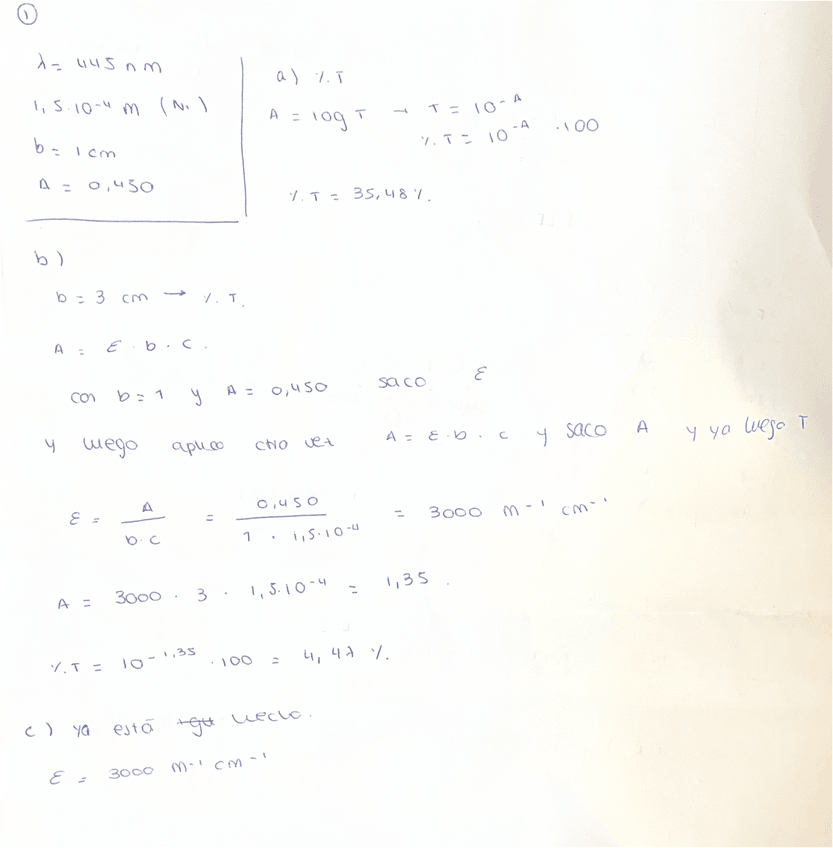 ①
λ = 445 nm
1,5·10⁻⁴ M (Ni)
b = 1 cm
A = 0,450
a) %T
A = log T → T = 10⁻ᴬ
%T = 10⁻ᴬ · 100
%T = 35,48%.
b)
b = 3 cm → %T.
A = ε · b · c.
con b = 1 y A = 0,450 saco ε
y luego aplico otra vez A = ε·b·c y saco A y ya luego T
ε = A / b·c = 0,450 / 1 · 1,5·10⁻⁴ = 3000 M⁻¹ cm⁻¹
A = 3000 · 3 · 1,5·10⁻⁴ = 1,35.
%T = 10⁻¹,³⁵ · 100 = 4,47 %.
c) ya está hecho.
ε = 3000 M⁻¹ cm⁻¹